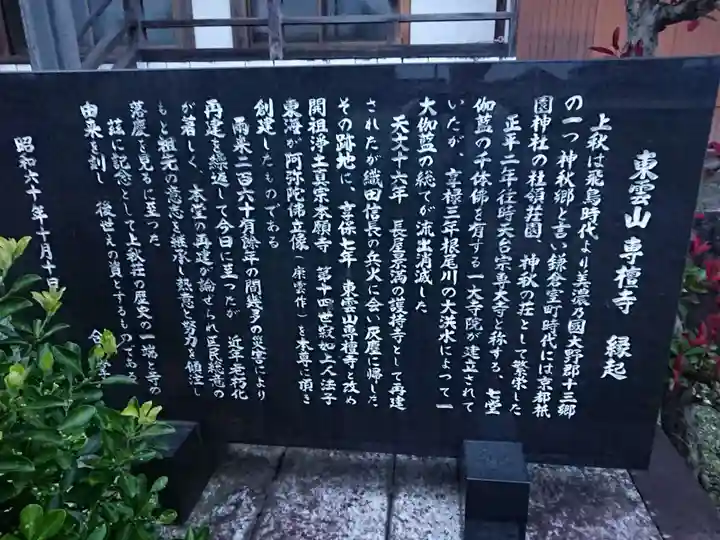 東雲山 專檀寺 縁起
上秋は飛鳥時代より美濃乃國大野郡十三郷
の一つ神秋郷と言い鎌倉室町時代には京都祇
園神社の社領荘園、神秋の荘として繁栄した
正平二年往時天台宗專大寺と称する、七堂
伽藍の千体佛を有する一大寺院が建立されて
いたが、享禄三年根尾川の大洪水によって一
大伽藍の総てが流出消滅した
天文十六年 長屋景満の護持寺として再建
されたが織田信長の兵火に会い灰塵に帰した
その跡地に、享保七年 東雲山專檀寺と改め
開祖浄土真宗本願寺 第十四世寂如上人法子
東海が阿弥陀佛立像(康雲作)を本尊に頂き
創建したものである
爾来二百六十有餘年の間幾多の災害により
再建を繰返して今日に至ったが 近年老朽化
が著しく、本堂の再建が論ぜられ区民総意の
もと祖先の意志を継承し熱意と努力を傾注し
落慶を見るに至った
茲に記念として上秋荘の歴史の一端と寺の
由来を刻し 後世えの資とするものであ
昭和六十年十月十日